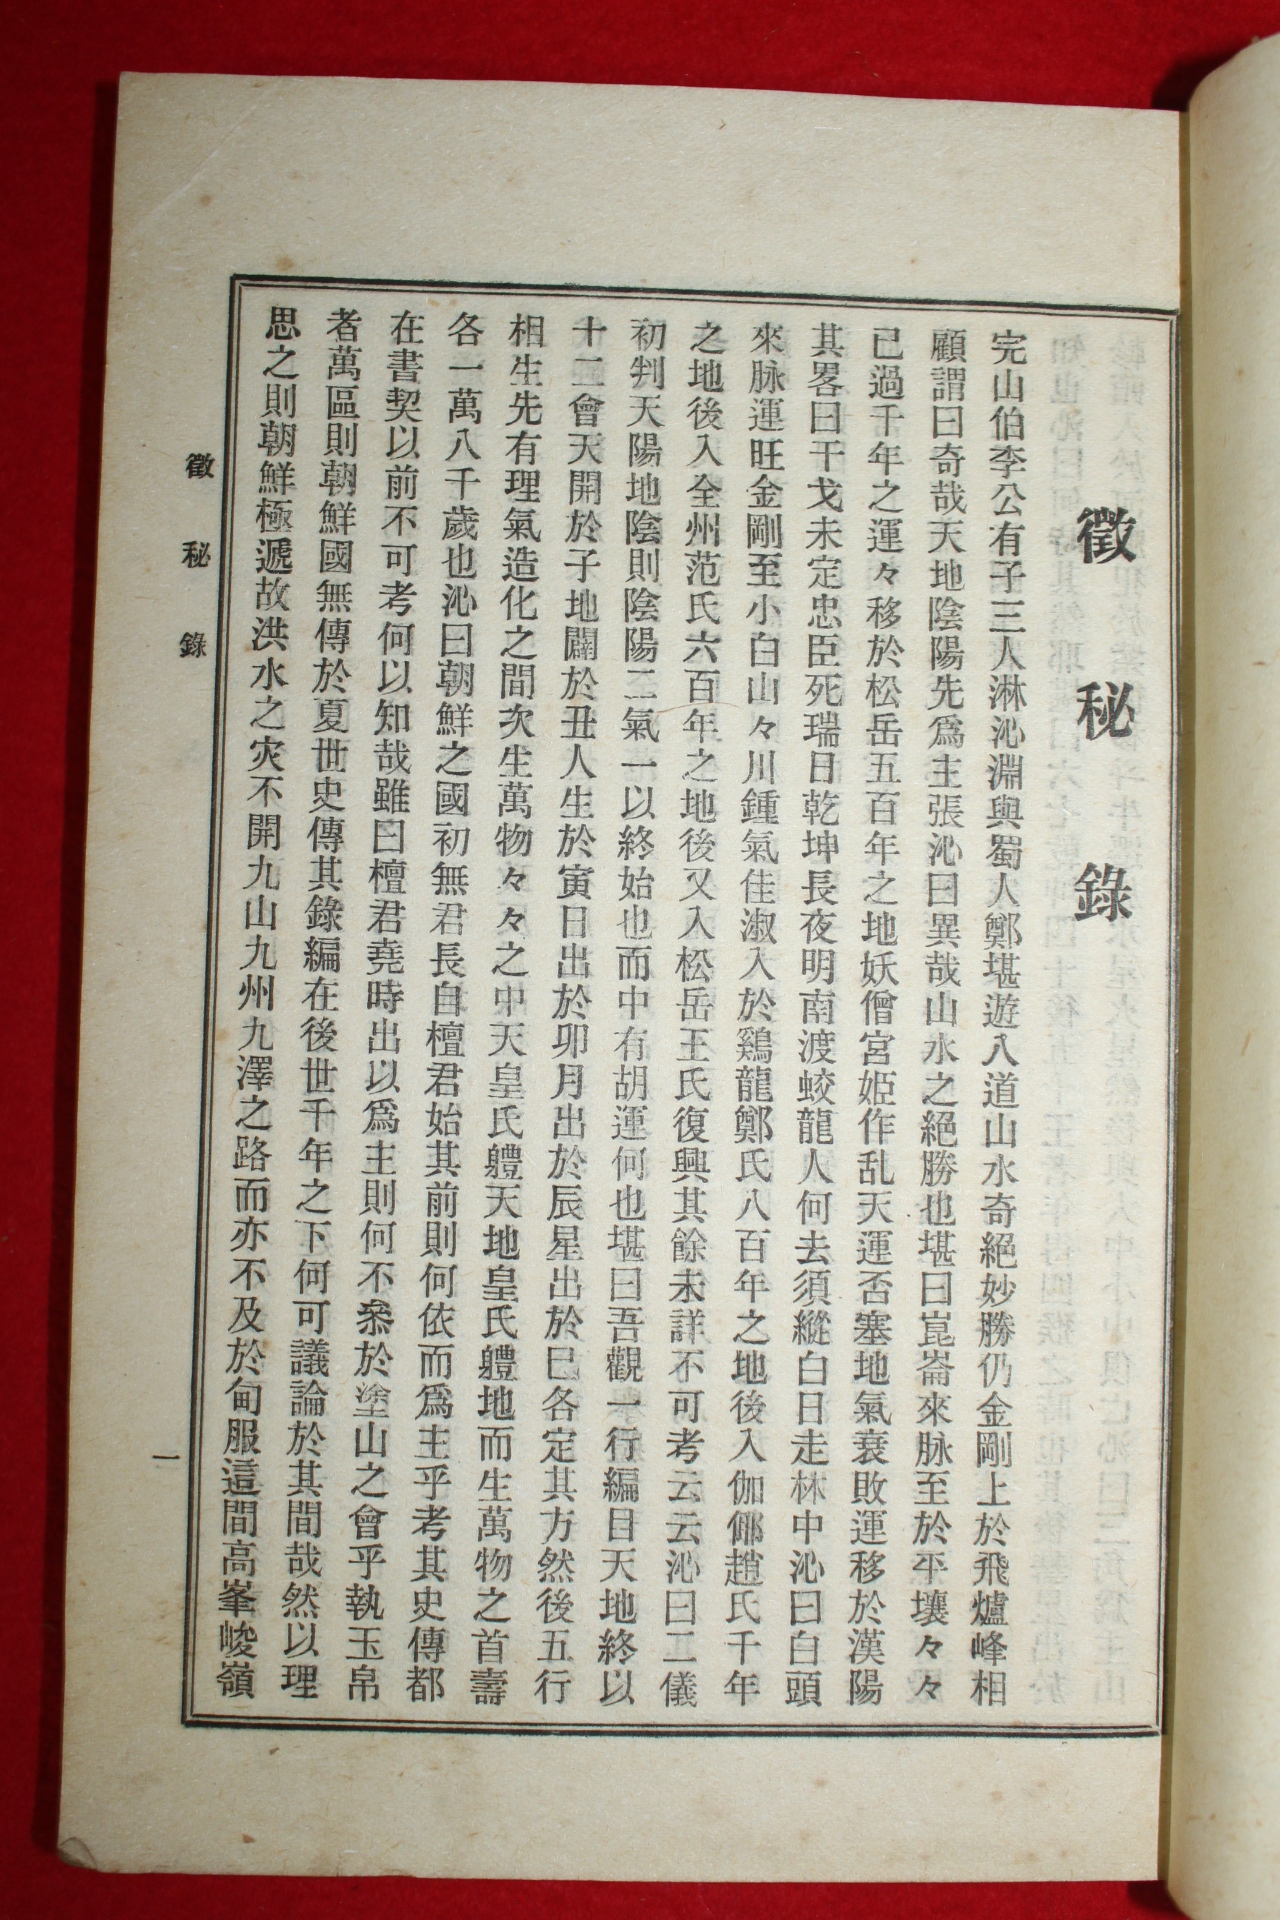 徵秘錄
完山伯李公有子三人淋沁淵與蜀人鄭堪遊八道山水奇絕妙勝仍金剛上於飛爐峰相
顧謂曰奇哉天地陰陽先爲主張沁曰異哉山水之絕勝也堪曰崑崙來脉至於平壤々々
已過千年之運々移於松岳五百年之地妖僧宮姬作乱天運否塞地氣衰敗運移於漢陽
其畧曰干戈未定忠臣死瑞日乾坤長夜明南渡蛟龍人何去須縱白日走林中沁曰白頭
來脉運旺金剛至小白山々川鍾氣佳淑入於鷄龍鄭氏八百年之地後入伽倻趙氏千年
之地後入全州范氏六百年之地後又入松岳王氏復興其餘未詳不可考云云沁曰二儀
初判天陽地陰則陰陽二氣一以終始也而中有胡運何也堪曰吾觀一行編目天地終以
十二會天開於子地闢於丑人生於寅日出於卯月出於辰星出於巳各定其方然後五行
相生先有理氣造化之間次生萬物々々之中天皇氏軆天地皇氏軆地而生萬物之首壽
各一萬八千歲也沁曰朝鮮之國初無君長自檀君始其前則何依而爲主乎考其史傳都
在書契以前不可考何以知哉雖曰檀君堯時出以爲主則何不叅於塗山之會乎執玉帛
者萬區則朝鮮國無傳於夏世史傳其錄編在後世千年之下何可議論於其間哉然以理
思之則朝鮮極遞故洪水之灾不開九山九州九澤之路而亦不及於甸服這間高峯峻嶺
徵秘錄
一